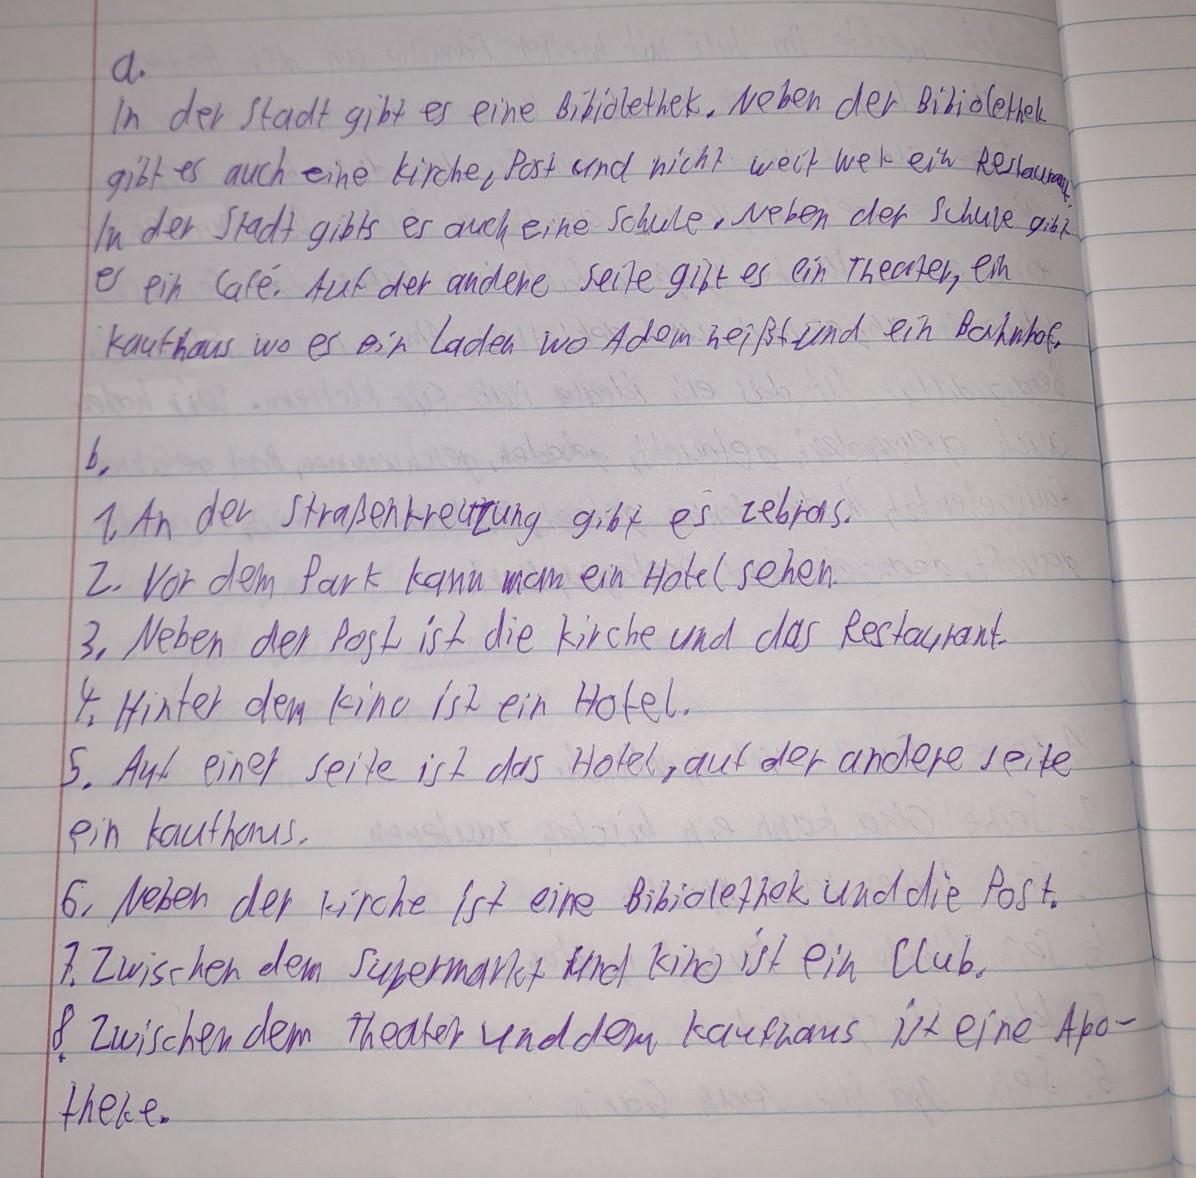 a.
In der Stadt gibt es eine Bibiolethek. Neben der Bibiolethek
gibt es auch eine Kirche, Post und nicht weit wek ein Restaurant.
In der Stadt gibts es auch eine Schule. Neben der Schule gibt
es ein Café. Auf der andere seite gibt es ein Theater, ein
Kaufhaus wo es ein Laden wo Adem heißt und ein Bahnhof.
b,
1. An der Straßenkreutzung gibt es zebras.
2. Vor dem Park kann man ein Hotel sehen.
3. Neben der Post ist die Kirche und das Restaurant.
4. Hinter dem Kino ist ein Hotel.
5. Auf einer seite ist das Hotel, auf der andere seite
ein Kaufhaus.
6. Neben der Kirche ist eine Bibiolethek und die Post.
7. Zwischen dem Supermarkt und Kino ist ein Club.
8. Zwischen dem Theater und dem Kaufhaus ist eine Apo-
theke.